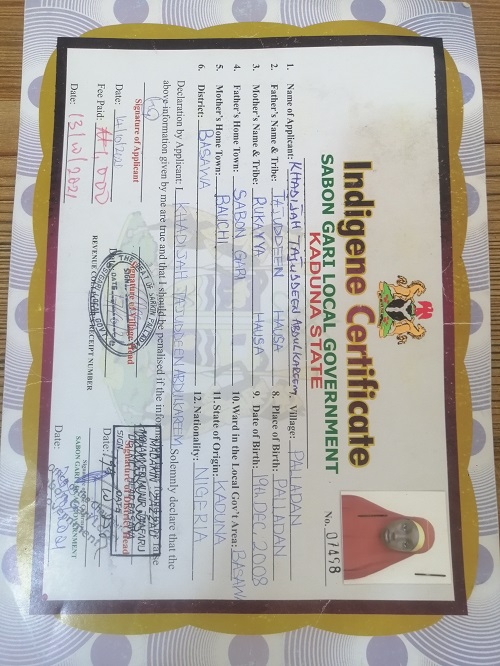 Indigene Certificate
SABON GARI LOCAL GOVERNMENT
KADUNA STATE
No. 07498
1. Name of Applicant: KHADIJAH TAJUDDEEN ABDULKAREEM
7. Village: PALLADAN
2. Father's Name & Tribe: TAJUDDEEN HAUSA
8. Place of Birth: PALLADAN
3. Mother's Name & Tribe: RUKAYYA HAUSA
9. Date of Birth: 19th DEC, 2008
4. Father's Home Town: SABON GARI
10. Ward in the Local Gov't Area: BASAW
5. Mother's Home Town: BAUCHI
11. State of Origin: KADUNA
6. District: BASAWA
12. Nationality: NIGERIA
Declaration by Applicant: I KHADIJAH TAJUDDEEN ABDULKAREEM Solemnly declare that the
above-information given by me are true and that I should be penalised if the
Signature of Applicant
Signature of Village Head
Signature of District Head
Date:
Date:
Fee Paid: ₦1,000
REVENUE COLLECTOR'S RECEIPT NUMBER
SABON GARI LOCAL GOVERNMENT
Date: 13/10/2021
Date: